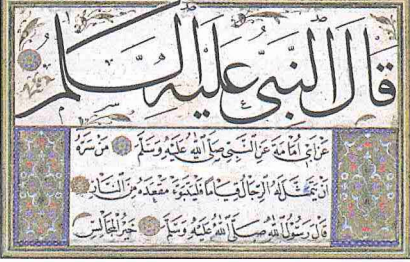 قَالَ النَّبِيُّ عَلَيْهِ السَّلَم
عَنْ أَبِي أُمَامَةَ عَنِ النَّبِيِّ صَلَّى اللهُ عَلَيْهِ وَسَلَّمَ مَنْ سَرَّهُ
اَنْ يَتَمَثَّلَ لَهُ الرِّجَالُ قِيَامًا فَلْيَتَبَوَّأْ مَقْعَدَهُ مِنَ النَّارِ
قَالَ رَسُولُ اللهِ صَلَّى اللهُ عَلَيْهِ وَسَلَّمَ خَيْرُ الْمَجَالِسِ